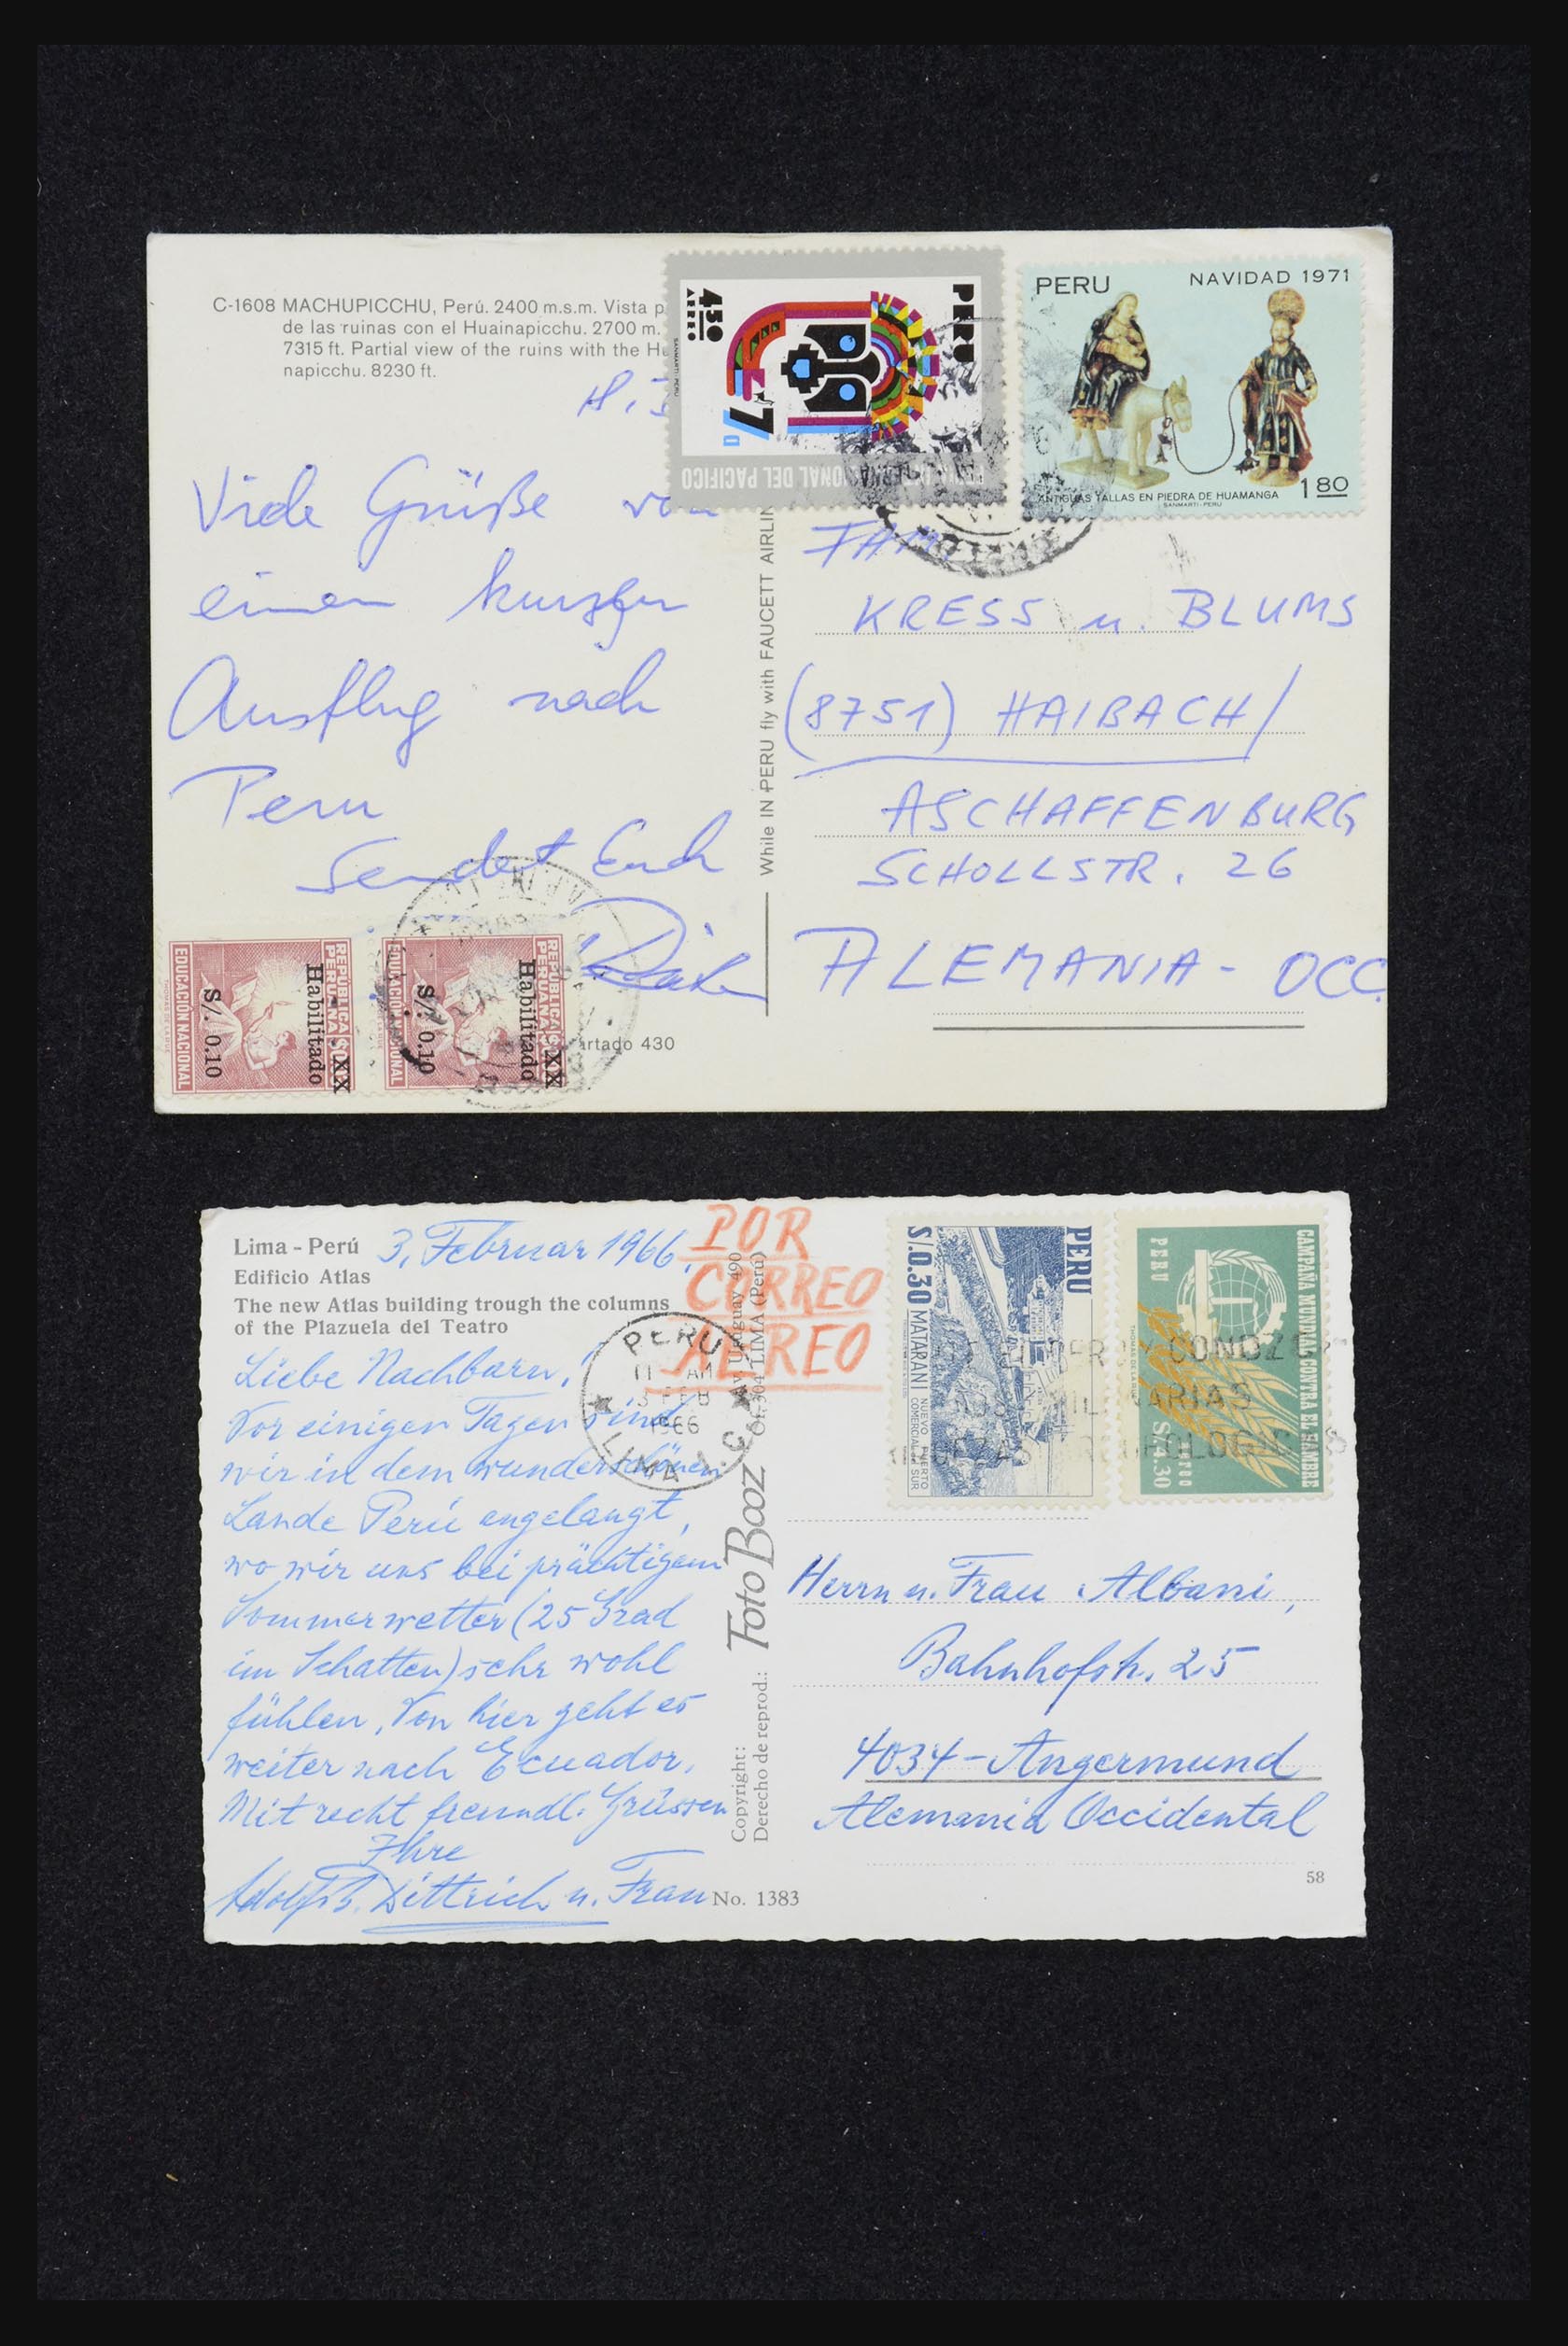 C-1608 MACHUPICCHU, Perú. 2400 m.s.m. Vista p
de las ruinas con el Huainapicchu. 2700 m.
7315 ft. Partial view of the ruins with the Hu
napicchu. 8230 ft.
PERU
4.50
AEREO
SANMARTI-PERU
7a
NACIONAL DEL PACIFICO
PERU NAVIDAD 1971
ANTIGUAS TALLAS EN PIEDRA DE HUAMANGA
SANMARTI-PERU
1 80
Viele Grüße von
einem kurzen
Ausflug nach
Peru
sendet Euch
While IN PERU fly with FAUCETT AIRLIN
FAM.
KRESS u. BLUMS
(8751) HAIBACH/
ASCHAFFENBURG
SCHOLLSTR. 26
ALEMANIA - OCC.
REPUBLICA
PERUANA
Habilitado
S/. 0.10
EDUCACIÓN NACIONAL
REPUBLICA
PERUANA
Habilitado
S/. 0.10
EDUCACIÓN NACIONAL
artado 430
Lima - Perú 3. Februar 1966.
Edificio Atlas
The new Atlas building trough the columns
of the Plazuela del Teatro
POR
CORREO
AEREO
PERU
11 AM
3 FEB
1966
LIMA
Liebe Nachbarn!
Vor einigen Tagen sind
wir in dem wunderschönen
Lande Perú angelangt,
wo wir uns bei prächtigem
Sommerwetter (25 Grad
im Schatten) sehr wohl
fühlen. Von hier geht es
weiter nach Ecuador.
Mit recht freundl. Grüssen
Ihre
Dittrich u. Frau
No. 1383
Copyright:
Derecho de reprod.:
Foto Booz
Av. Uruguay 490
Of. 304 LIMA (Perú)
PERU
S/.0.30
MATARANI NUEVO PUERTO
COMERCIAL DEL SUR
CAMPAÑA MUNDIAL CONTRA EL HAMBRE
PERU
THOMAS DE LA RUE
aereo
S/4.30
Herrn u. Frau Albani,
Bahnhofstr. 25
4034-Angermund
Alemania Occidental
58